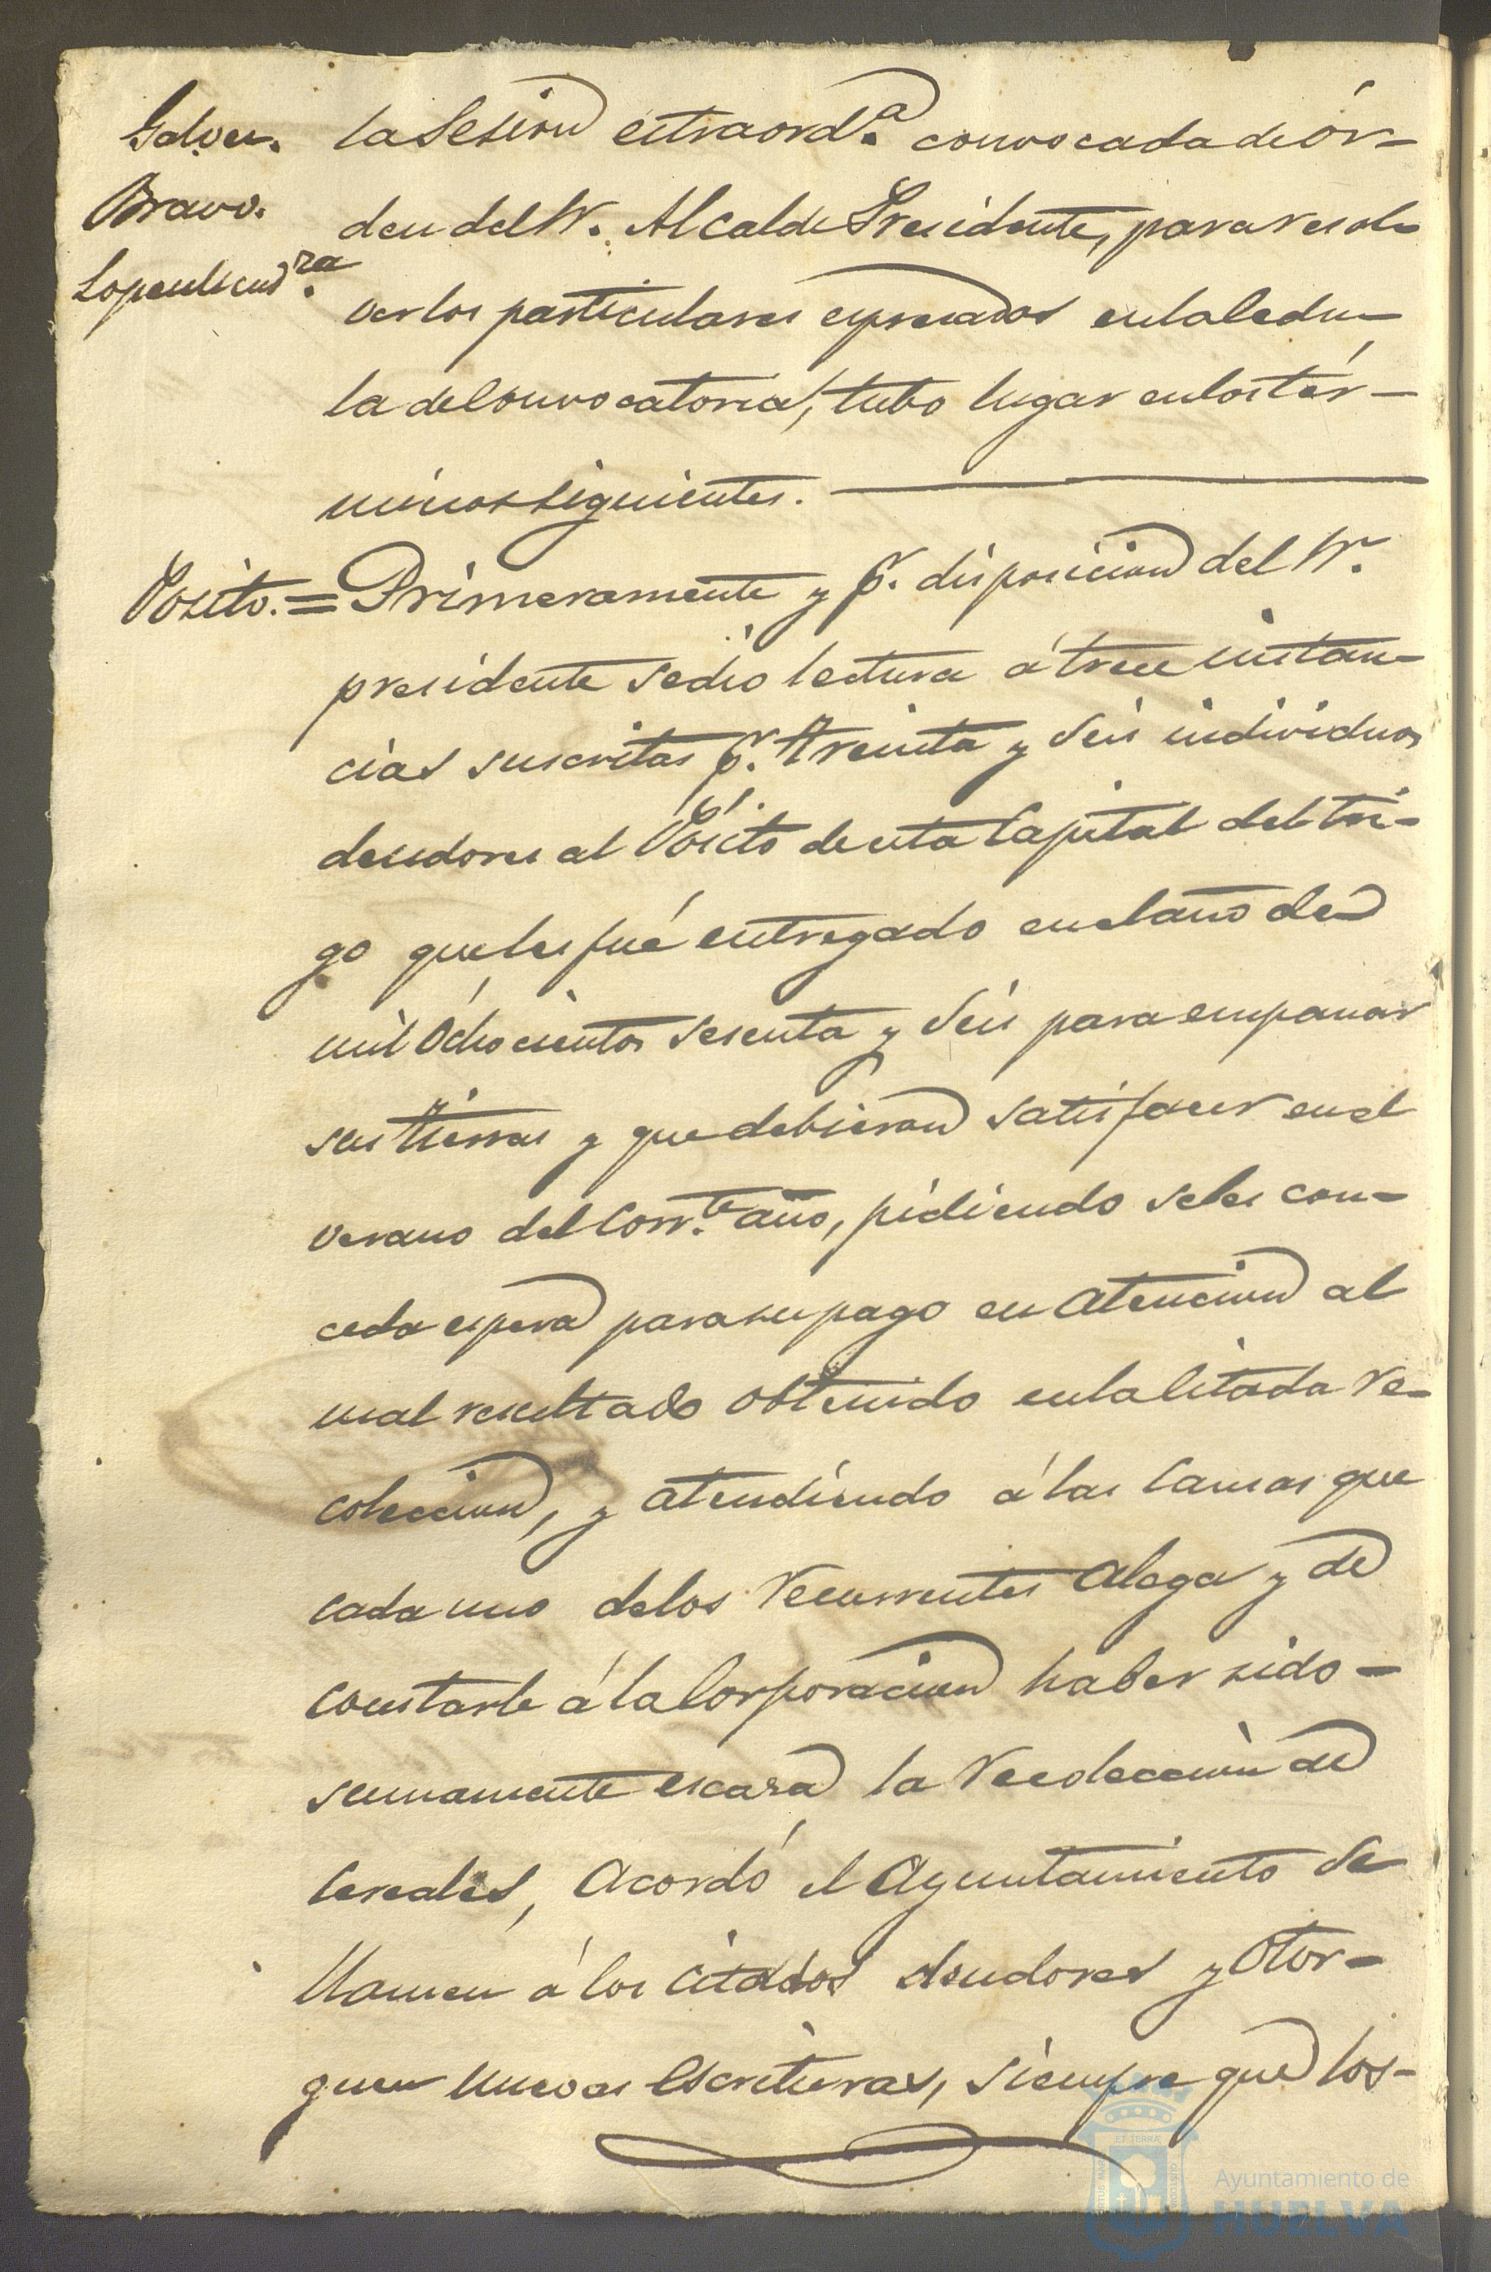 Galvez.
Bravo.
la Sesion estraord.ª convocada de ór-
den del Sr. Alcalde Presidente, para resol-
ver los particulares espresados en la Cedu-
la de Convocatoria, tubo lugar en los tér-
minos siguientes.
Posito. = Primeramente y pr. disposicion del Sr.
presidente se dió lectura á trece instan-
cias suscritas pr. treinta y seis individuos
deudores al Pósito de esta Capital del tri-
go que les fué entregado en el año de
mil ochocientos sesenta y seis para empanar
sus tierras y que debieron satisfacer en el
verano del Corr.te año, pidiendo se les con-
ceda espera para su pago en atencion al
mal resultado obtenido en la citada re-
coleccion, y atendiendo á las causas que
cada uno de los recurrentes alega y de
constarle á la Corporacion haber sido -
sumamente escasa la recoleccion de
Cereales, acordó el Ayuntamiento se
llamen á los citados deudores y otor-
guen nuevas escrituras, siempre que los-
Ayuntamiento de
HUELVA